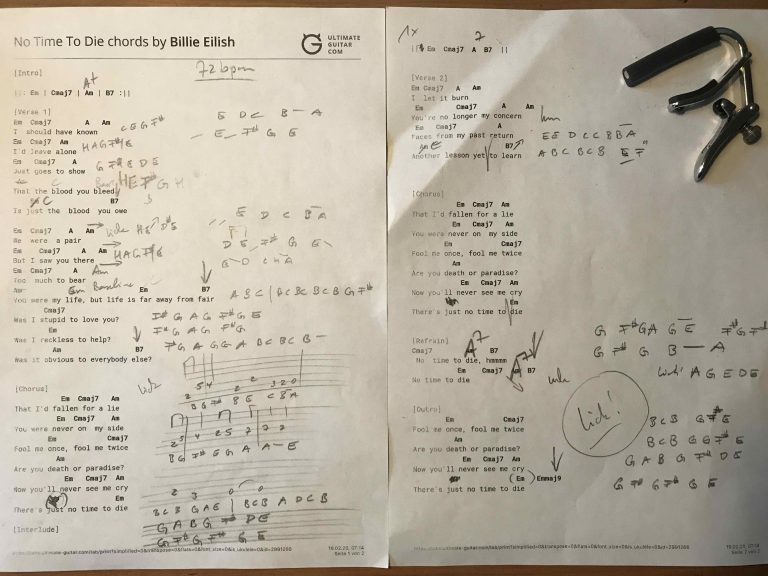 No Time To Die chords by Billie Eilish
ULTIMATE
GUITAR
COM
[Intro]
72 bpm
A7
||: Em | Cmaj7 | Am | B7 :||
[Verse 1]
Em Cmaj7 A Am
E D C B — A
I should have known
C E G F#
E F# G E
Em Cmaj7 Am
I'd leave alone
H A G F# E
Em Cmaj7 A
Just goes to show
G F# E D E
C
That the blood you bleed
H E F# G H
C B7
Is just the blood you owe
Em Cmaj7 A Am
E D C B A
We were a pair
Em Cmaj7 A Am
D E F# G E
But I saw you there
H A G F# E
Em Cmaj7 A Am
Too much to bear
Am Em Baseline Em B7
You were my life, but life is far away from fair
A B C | B C B C B C B G F#
Cmaj7
Was I stupid to love you?
F# G A G F# G E
Em
Was I reckless to help?
F# G A G F# G
Am B7
Was it obvious to everybody else?
F# G A G G A B C B C B —
[Chorus]
Em Cmaj7 Am
That I'd fallen for a lie
Em Cmaj7 Am
You were never on my side
Em Cmaj7
Fool me once, fool me twice
B G F# E G A A — E
Am
Are you death or paradise?
Em Cmaj7 Am
Now you'll never see me cry
Em
There's just no time to die
B C B G A E | B C B A D C B
G A B G F# D E
[Interlude]
G F# G F# G E
19.02.20, 07:14
Seite 1 von 2
1x
7
||: Em Cmaj7 A B7 ||
[Verse 2]
Em Cmaj7 A Am
I let it burn
Em Cmaj7 A Am
You're no longer my concern
hm
Em Cmaj7 A
Faces from my past return
E E D C C B B A
Am E B7
Another lesson yet to learn
A B C B C B E F#
[Chorus]
Em Cmaj7 Am
That I'd fallen for a lie
Em Cmaj7 Am
You were never on my side
Em Cmaj7
Fool me once, fool me twice
Am
Are you death or paradise?
Em Cmaj7 Am
Now you'll never see me cry
Em
There's just no time to die
[Refrain]
A7
G F# G A G E F# G F#
Cmaj7 A B7
No time to die, hmmmm
G F# G B — A
Em Cmaj7 A7 B7
No time to die
A G E D E
[Outro]
lick!
Em Cmaj7
Fool me once, fool me twice
B C B G F# E
Am
Are you death or paradise?
B C B G G F# E
Em Cmaj7 Am
Now you'll never see me cry
G A B G F# D E
(Em) Emmaj9
There's just no time to die
G F# G F# G E
19.02.20, 07:14
Seite 2 von 2